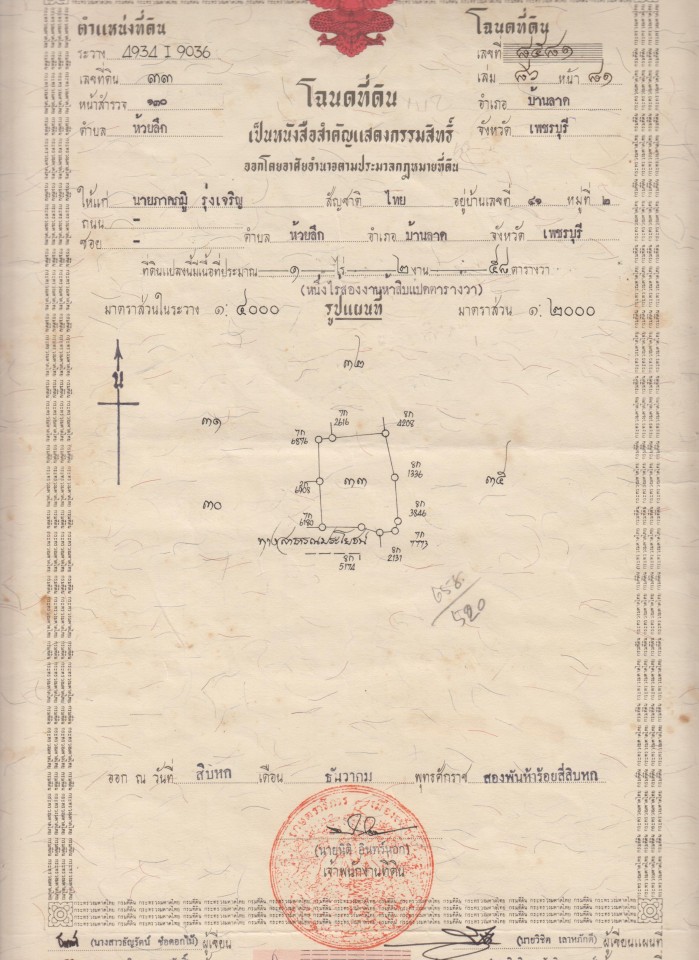 ตำแหน่งที่ดิน
ระวาง 4934 I 9036
เลขที่ดิน ๓๓
หน้าสำรวจ ๑๓๐
ตำบล ห้วยลึก
โฉนดที่ดิน
เลขที่ ๘๕๘๑
เล่ม ๘๖ หน้า ๘๑
อำเภอ บ้านลาด
จังหวัด เพชรบุรี
โฉนดที่ดิน
เป็นหนังสือสำคัญแสดงกรรมสิทธิ์
ออกโดยอาศัยอำนาจตามประมวลกฎหมายที่ดิน
ให้แก่ นายภาคภูมิ รุ่งเจริญ สัญชาติ ไทย อยู่บ้านเลขที่ ๔๑ หมู่ที่ ๒
ถนน -
ซอย - ตำบล ห้วยลึก อำเภอ บ้านลาด จังหวัด เพชรบุรี
ที่ดินแปลงนี้มีเนื้อที่ประมาณ ๑ ไร่ ๒ งาน ๕๘ ตารางวา
(หนึ่งไร่สองงานห้าสิบแปดตารางวา)
มาตราส่วนในระวาง ๑: ๔๐๐๐ รูปแผนที่ มาตราส่วน ๑: ๒๐๐๐
น
๓๒
๓๑
7ก 6876
7ก 2616
8ก 4208
2ก 6908
๓๓
8ก 1336
๓๕
๓๐
7ก 6780
8ก 3846
ทางสาธารณประโยชน์
8ก 5174
8ก 2131
7ก 7773
520
ออก ณ วันที่ สิบหก เดือน ธันวาคม พุทธศักราช สองพันห้าร้อยสี่สิบหก
เจ้าพนักงานที่ดิน
(นางสาวธัญรัตน์ ช่อดอกไม้) ผู้เขียน
(นายวิชิต เลาหภักดี) ผู้เขียนแผนที่